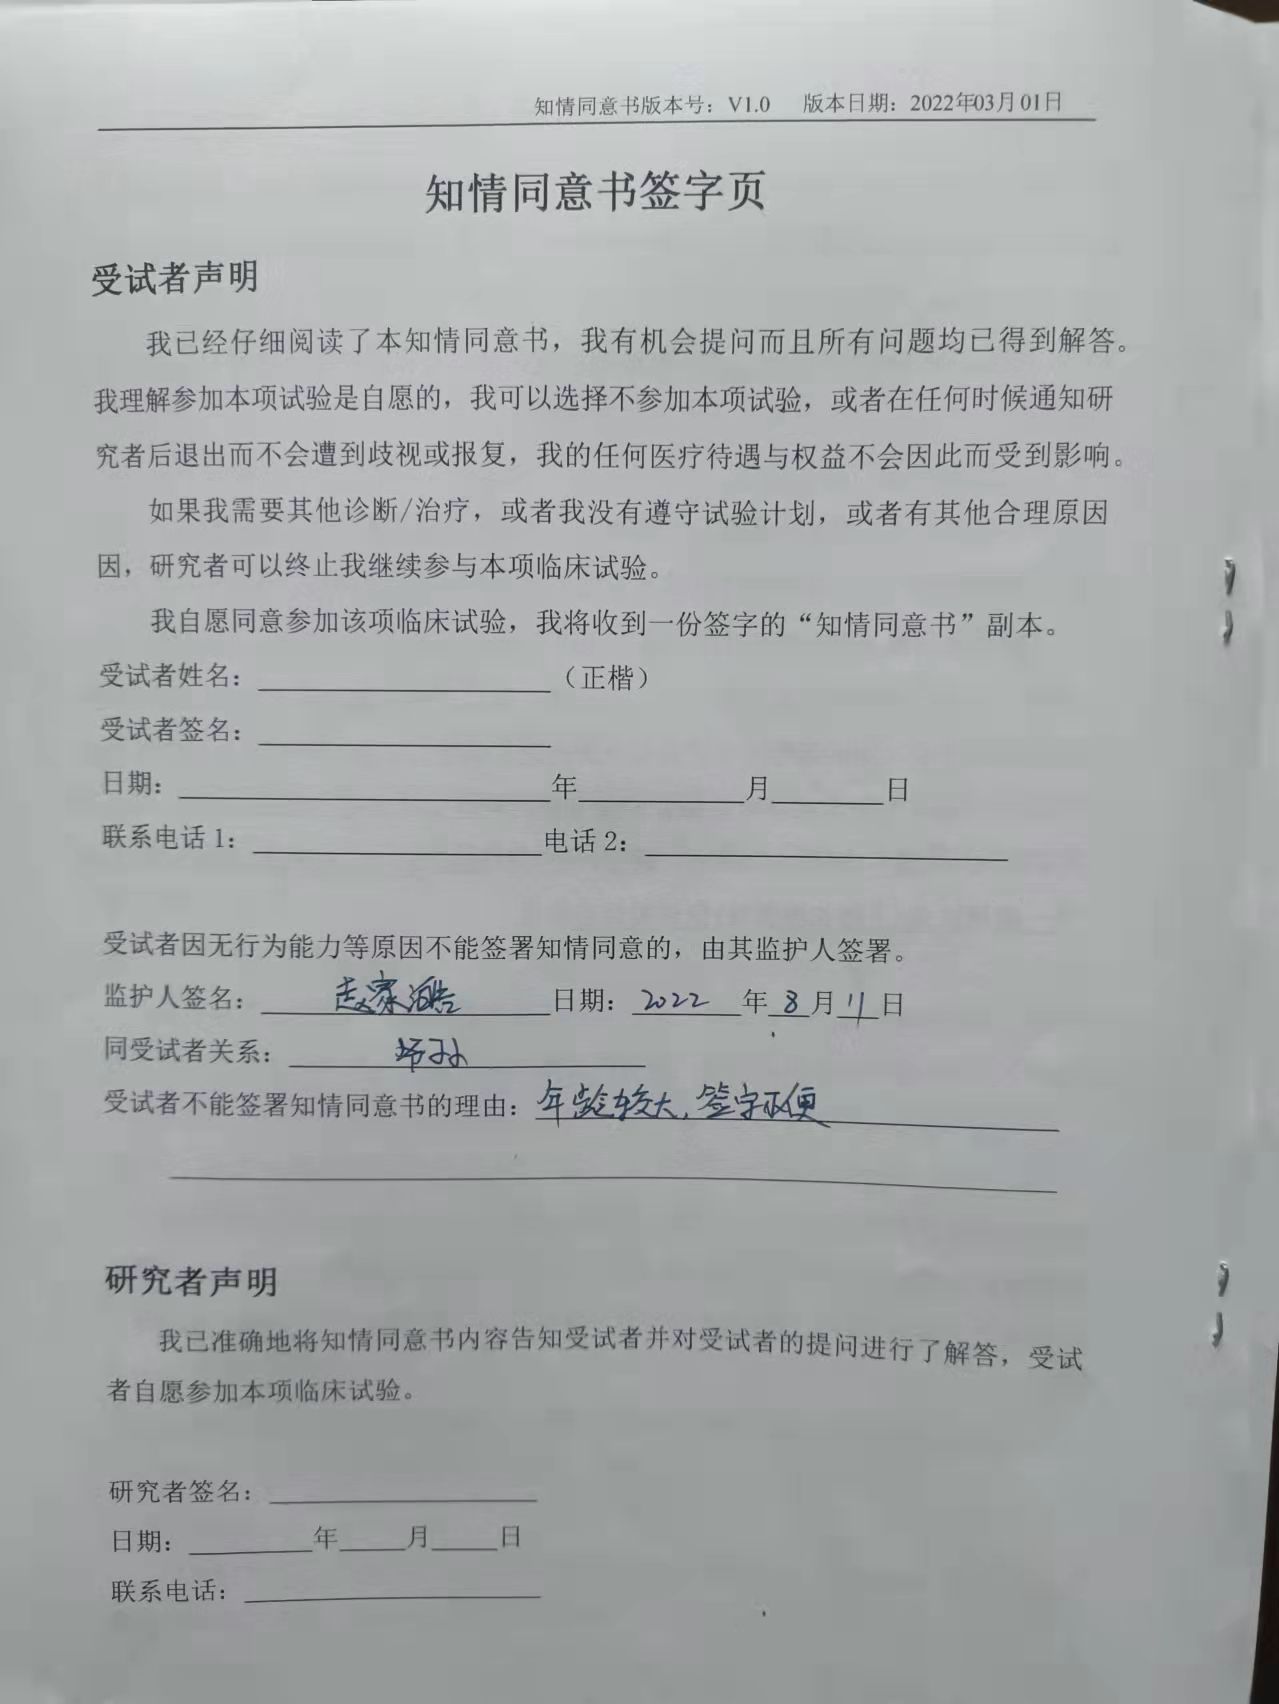 知情同意书版本号：V1.0 版本日期：2022年03月01日
知情同意书签字页
受试者声明
我已经仔细阅读了本知情同意书，我有机会提问而且所有问题均已得到解答。
我理解参加本项试验是自愿的，我可以选择不参加本项试验，或者在任何时候通知研
究者后退出而不会遭到歧视或报复，我的任何医疗待遇与权益不会因此而受到影响。
如果我需要其他诊断/治疗，或者我没有遵守试验计划，或者有其他合理原因
因，研究者可以终止我继续参与本项临床试验。
我自愿同意参加该项临床试验，我将收到一份签字的“知情同意书”副本。
受试者姓名：（正楷）
受试者签名：
日期：年月日
联系电话1：电话2：
受试者因无行为能力等原因不能签署知情同意的，由其监护人签署。
监护人签名：赵家浩 日期：2022年8月11日
同受试者关系：
受试者不能签署知情同意书的理由：年龄较大，签字不便
研究者声明
我已准确地将知情同意书内容告知受试者并对受试者的提问进行了解答，受试
者自愿参加本项临床试验。
研究者签名：
日期：年月日
联系电话：